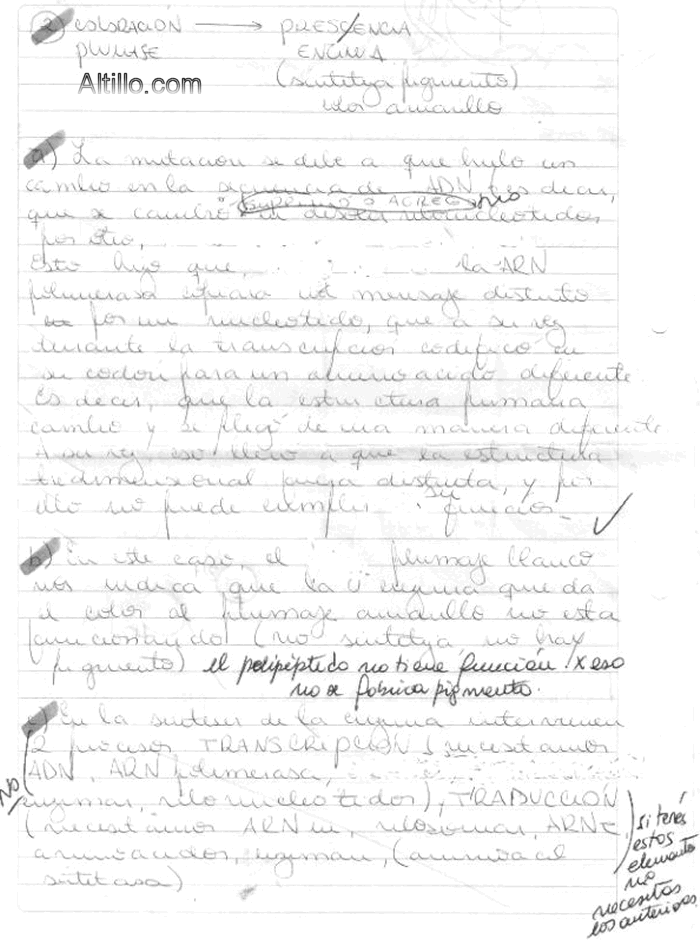 2) COLORACIÓN → PRESCENCIA
PLUMAJE ENCIMA
Altillo.com (sintetiza pigmento)
color amarillo
a) La mutación se debe a que hubo un
cambio en la secuencia de ADN, es decir,
que se cambió SUPRIMIÓ O AGREGÓ NO ribonucleotidos
por otro,
Esto hizo que, la ARN
polimerasa copiara un mensaje distinto
por un nucleotido, que a su vez
durante la transcripción codificó en
su codón para un aminoacido diferente.
Es decir, que la estructura primaria
cambio y se plegó de una manera diferente
A su vez eso llevo a que la estructura
tridimensional fuera distinta, y por
ello no puede cumplir su función ✓
b) En este caso, el plumaje blanco
nos indica que la enzima que da
el color al plumaje amarillo no esta
funcionando (no sintetiza no hay
pigmento) el polipéptido no tiene función. X eso
no se fabrica pigmento.
c) En la sintesis de la enzima intervienen
2 procesos TRANSCRIPCIÓN (necesitamos
ADN, ARN polimerasa,
NO enzimas, ribonucleótidos), TRADUCCIÓN
(necesitamos ARNm, ribosomas, ARNt,
aminoacidos, enzimas, (aminoacil
sintetasa)
si tenés
estos
elementos
no
necesitas
los anteriores.